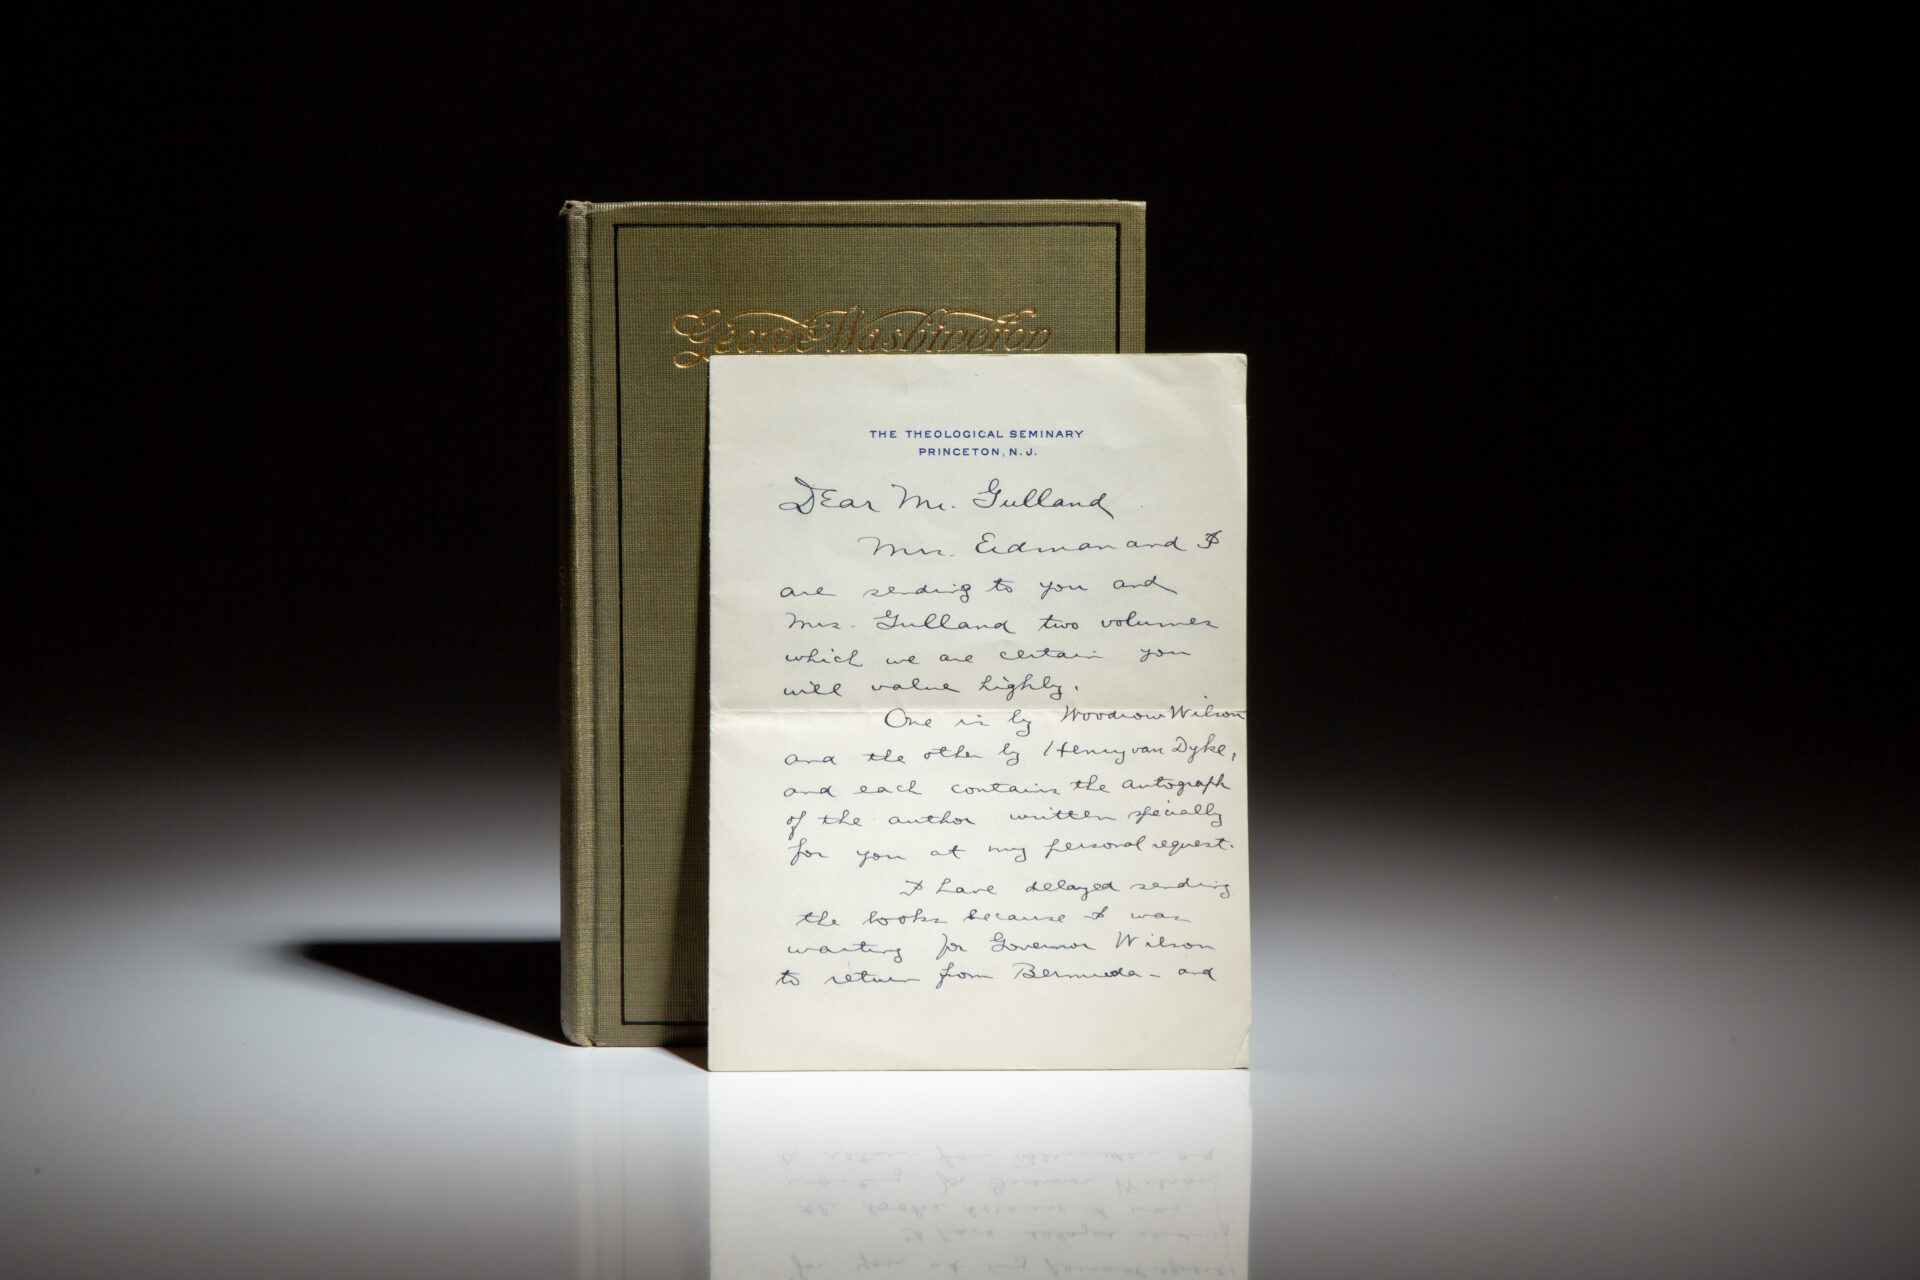 George Washington
THE THEOLOGICAL SEMINARY
PRINCETON, N.J.
Dear Mr. Gulland
Mrs. Erdman and I
are sending to you and
Mrs. Gulland two volumes
which we are certain you
will value highly.
One is by Woodrow Wilson
and the other by Henry van Dyke,
and each contains the autograph
of the author written specially
for you at my personal request.
I have delayed sending
the books because I was
waiting for Governor Wilson
to return from Bermuda - and